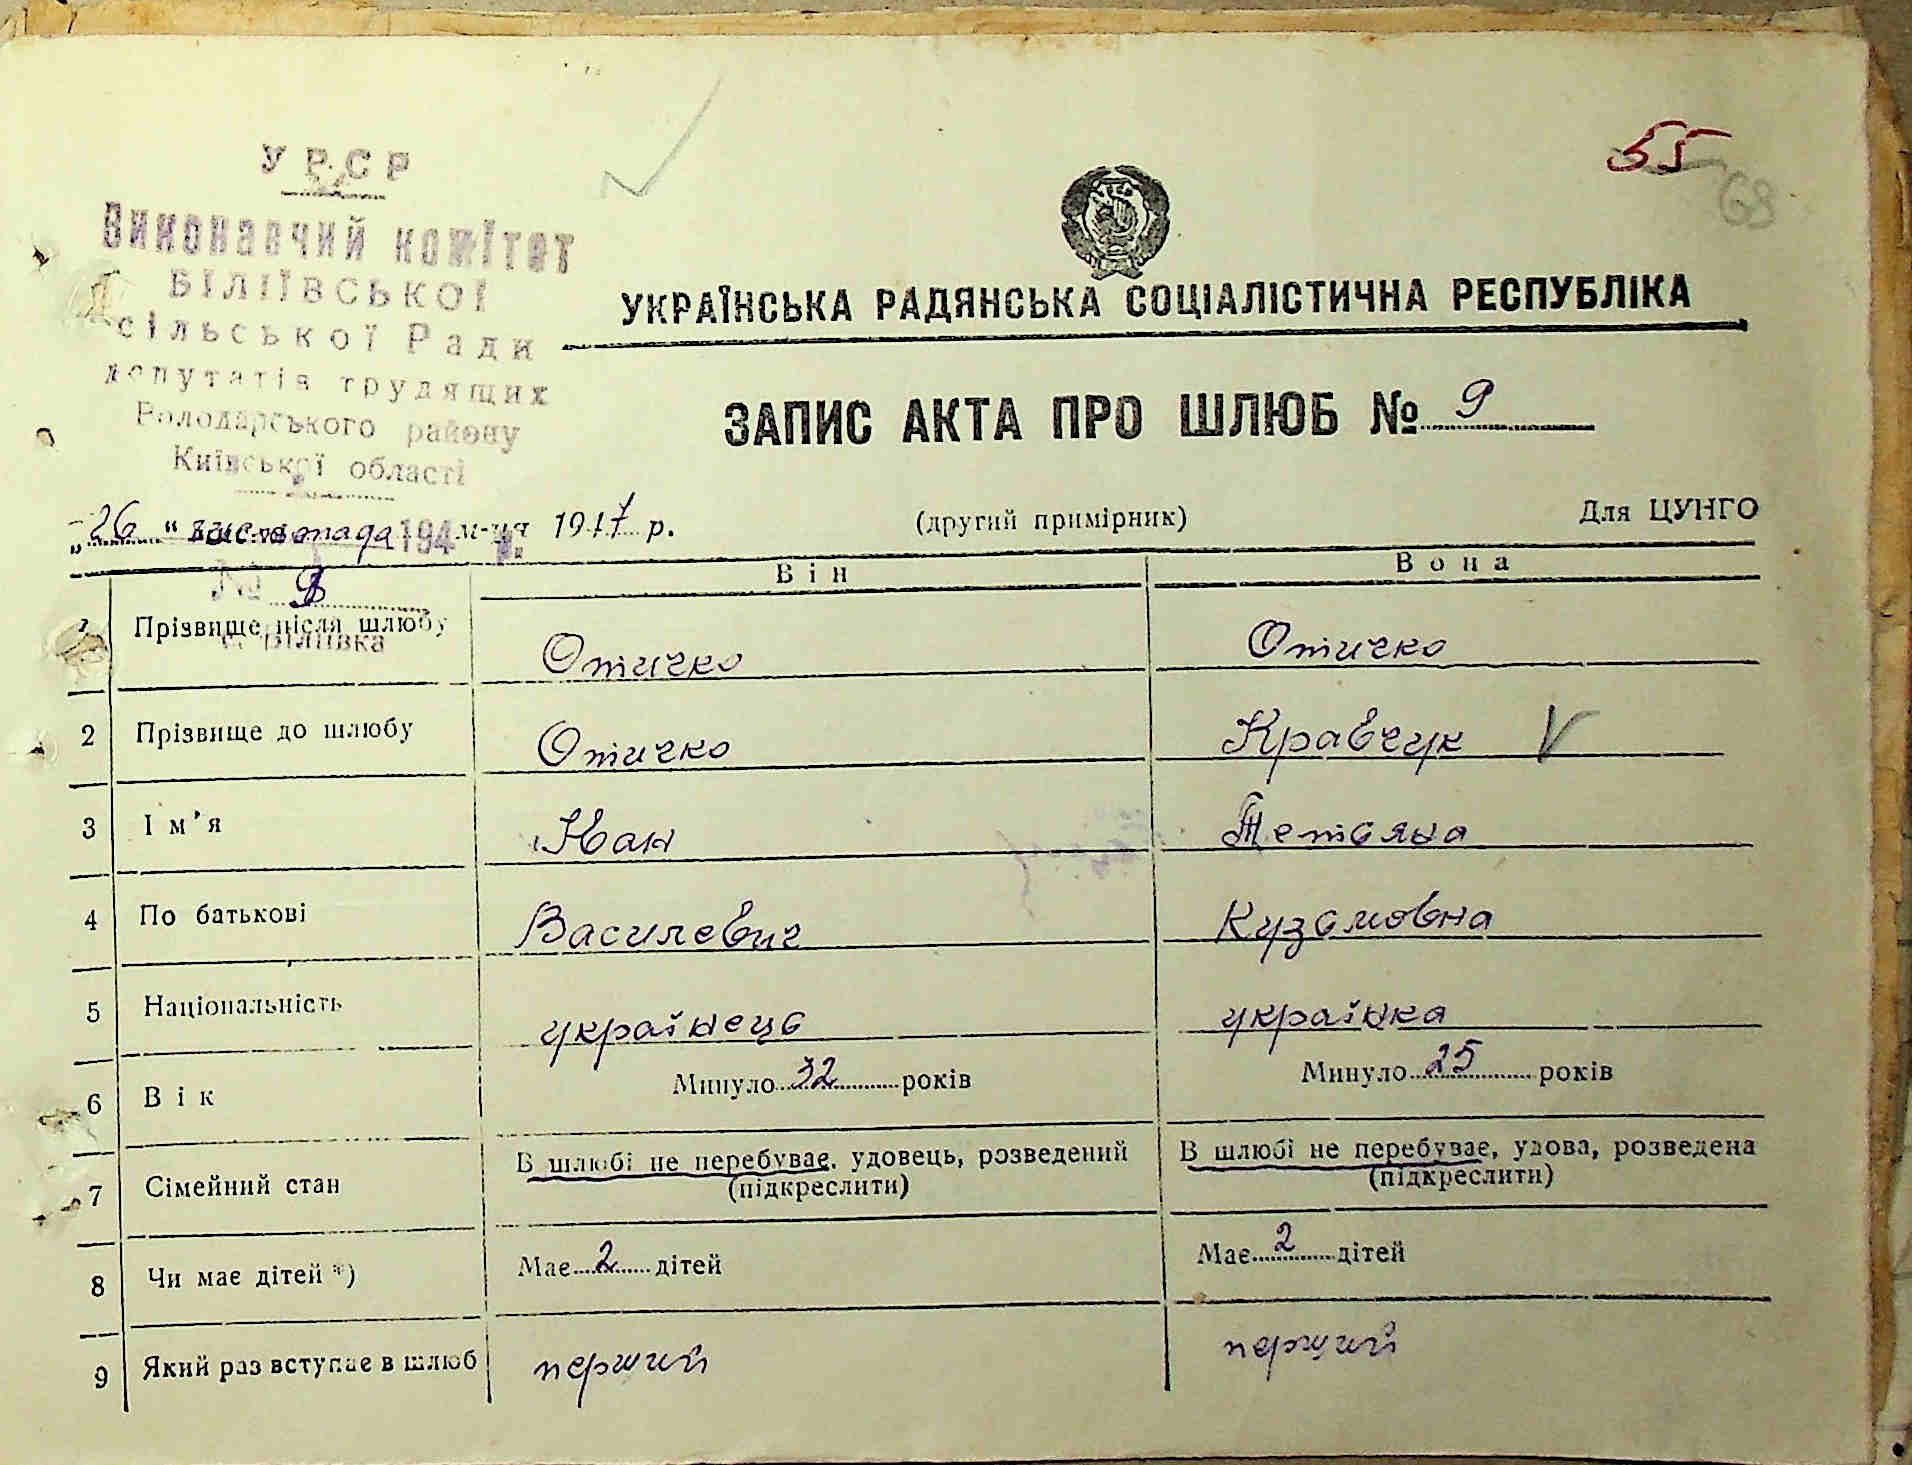 55
68
У Р С Р
Виконавчий комітет
БІЛІЇВСЬКОЇ
сільської Ради
депутатів трудящих
Володарського району
Київської області
УКРАЇНСЬКА РАДЯНСЬКА СОЦІАЛІСТИЧНА РЕСПУБЛІКА
ЗАПИС АКТА ПРО ШЛЮБ № 9
„26 “ листопада 194 м-ця 1947 р.
(другий примірник)
Для ЦУНГО
№ 9
с. Біліївка
Він Вона
1 Прізвище після шлюбу Отичко Отичко
2 Прізвище до шлюбу Отичко Кравчук V
3 Ім'я Іван Тетяна
4 По батькові Василевич Кузьмовна
5 Національність українець українка
6 Вік Минуло 32 років Минуло 25 років
7 Сімейний стан В шлюбі не перебуває, удовець, розведений В шлюбі не перебуває, удова, розведена
(підкреслити) (підкреслити)
8 Чи має дітей *) Має 2 дітей Має 2 дітей
9 Який раз вступає в шлюб перший перший